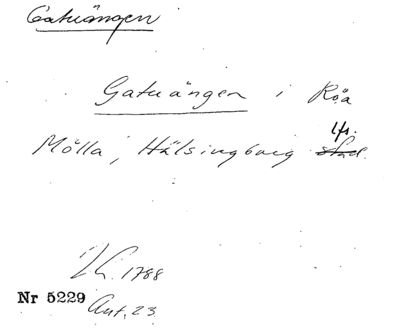 Gatuängen
Gatuängen i Råå
lfs.
Mölla, Hälsingborg stad.
1788
Nr 5229
Ant. 23